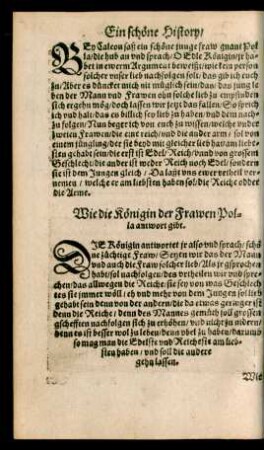 Ein schöne History/
BEy Caleon saß ein schöne junge fraw gnant Pol
la/die hub an vnd sprach/O Edle Königin/jr ha
bet in ewerm Argument beweist/wie kein person
solcher vnser lieb nachfolgen soll/das gib ich euch
zu/Aber es düncket mich nit müglich sein/das/das jung le
ben der Mann vnd Frawen ein solche lieb zu empfinden
sich ergeben mög/doch lassen wir jetzt das fallen/So sprich
ich vnd halt/das es billich sey lieb zu haben/vnd dem nach
zu folgen/Nun beger ich von euch zu wissen/welche vnder
zweien Frawen/die eine reich/vnd die ander arm/sol von
einem jüngling/der sie beyd mit gleicher lieb hat/am lieb
sten gehabt sein/die erst ist Edel/Reich/vnnd von grossem
Geschlecht/die ander ist weder Reich noch Edel/sondern
sie ist dem Jungen gleich/Da laßt vns ewer vrtheil ver
nemen/welche er am liebsten haben sol/die Reiche odder
die Arme.
Wie die Königin der Frawen Pol-
la antwort gibt.
DIE Königin antwortet jr also vnd sprach/schö
ne züchtige Fraw/Seyen wir dan der Mann
vnd auch die Fraw solcher lieb/Als jr gesprochen
habt/sol nachfolgen/den vrtheilen wir vnd spre
chen/das allwegen die Reiche/sie sey von was Geschlech
tes sie jmmer wöll/eh vnd mehr von dem Jungen sol lieb
gehabt sein denn von der andern/die da etwas geringer ist
denn die Reiche/denn des Mannes gemüth soll grossen
gschefften nachfolgen sich zu erhöhen/vnd nicht zu nidern/
wenn es ist besser wol zu leben/denn vbel zu haben/darumb
so mag man die Edelste vnd Reicheste am lieb-
sten haben/vnd soll die andere
gehn lassen.
Wie